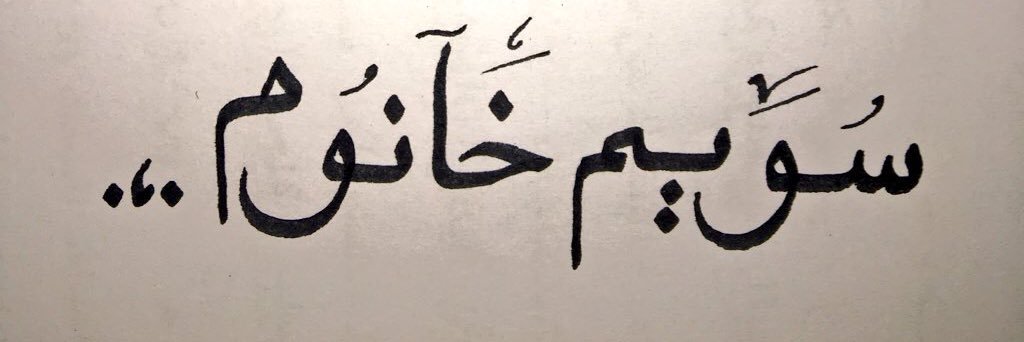 سُوَيم خَآنوُم ...